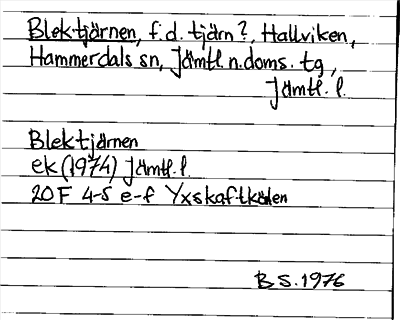 Blektjärnen, f.d. tjärn?, Hallviken,
Hammerdals sn, Jämtl.n.doms. tg,
Jämtl. l.
Blektjärnen
ek (1974) Jämtl. l.
20F 4-5 e-f Yxskaftkälen
B S. 1976